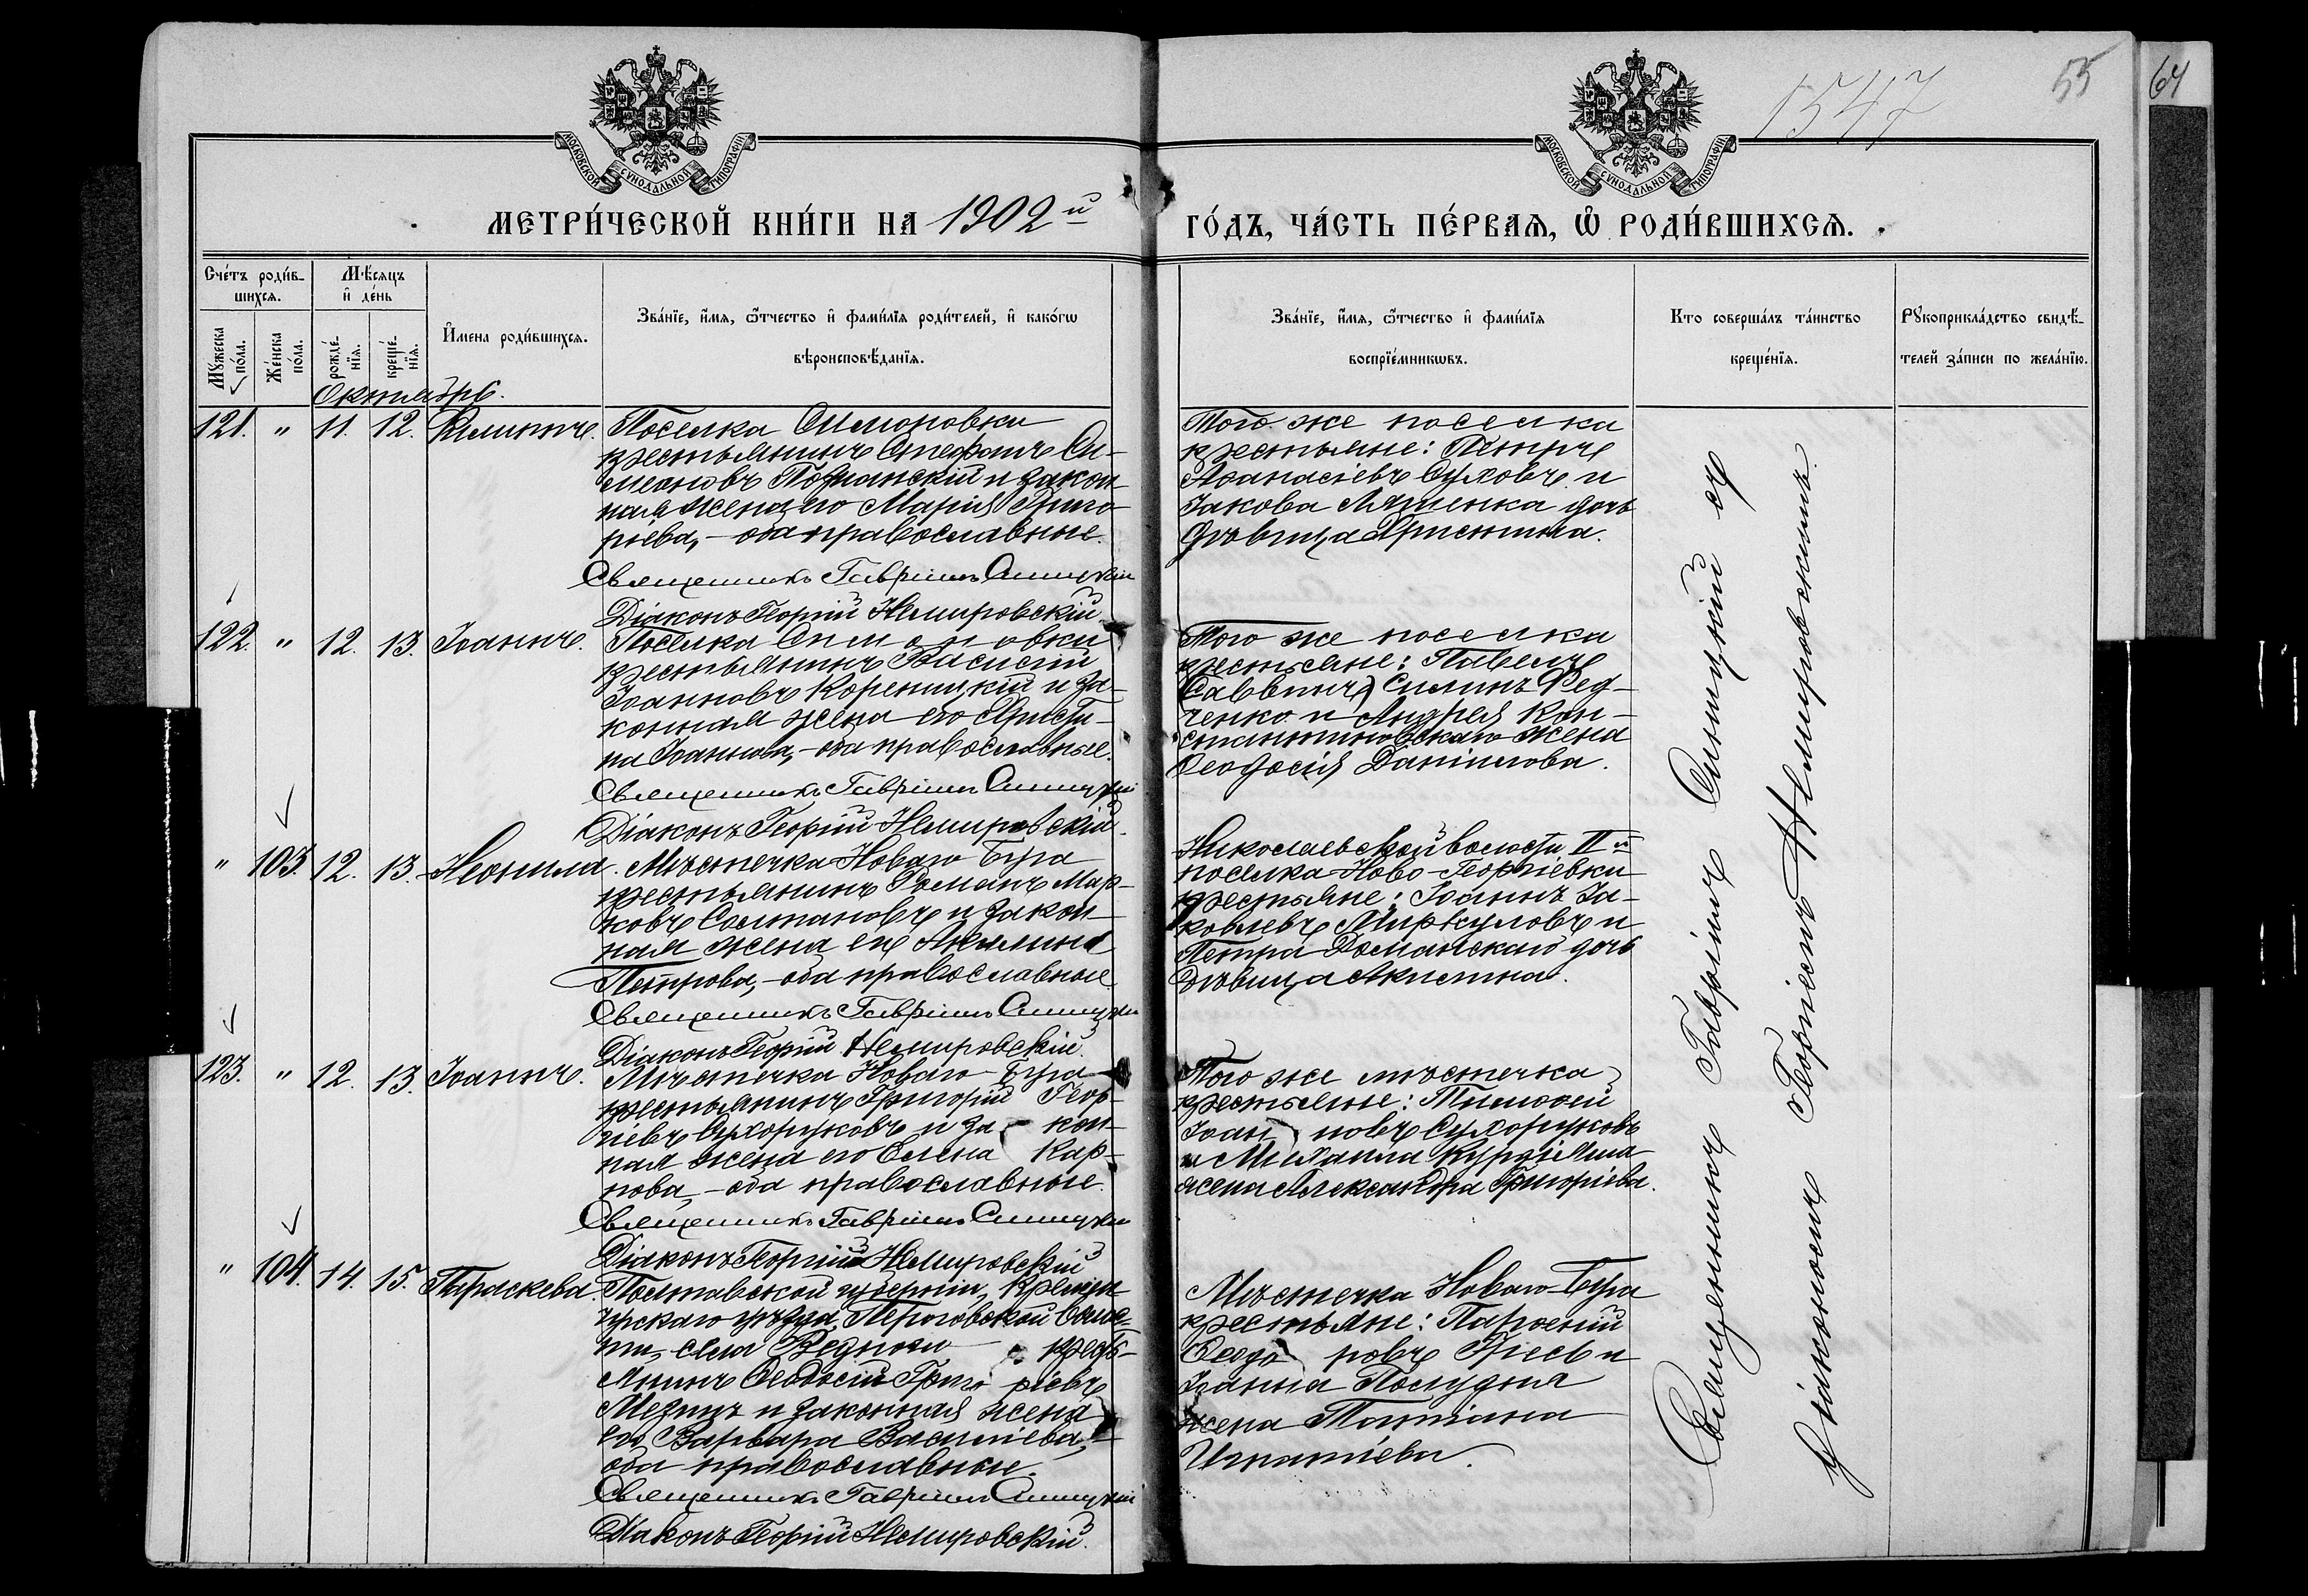 1547
55
64
МОСКОВСКОЙ СѴНОДАЛЬНОЙ ТИПОГРАФІИ
МОСКОВСКОЙ СѴНОДАЛЬНОЙ ТИПОГРАФІИ
МЕТРИ́ЧЕСКОЙ КНИ́ГИ НА 1902й ГО́ДЪ, ЧА́СТЬ ПЕ́РВАЯ, Ѡ҆ РОДИ́ВШИХСЯ.
Сче́тъ роди́вшихся.
Мѣ́сяцъ и҆ де́нь
Мꙋ́жеска по́ла.
Же́нска по́ла.
рожде́нїя.
креще́нїя.
И҆мена роди́вшихся.
Зва́нїе, и҆́мя, ѻ҆́тчество и҆ фами́лїя роди́телей, и҆ како́гѡ
вѣроисповѣ́данїя.
Зва́нїе, и҆́мя, ѻ҆́тчество и҆ фами́лїя
воспрїе́мникѡвъ.
Кто соверша́лъ та́инство
креще́нїя.
Рꙋкоприкла́дство свидѣ́телей за́писи по жела́нїю.
Октябрь.
121. " 11. 12. Филиппъ.
Поселка Симоновки
крестьянинъ Стефанъ Си-
меоновъ Познанскій и закон-
ная жена его Марія Григо-
рьева, - оба православные.
Священникъ Гавріилъ Синицкій
Діаконъ Георгій Немировскій
Того же поселка
крестьяне: Петръ
Аѳанасіевъ Суховъ и
Іакова Ляшенка дочь
дѣвица Христина.
122. " 12. 13. Іоаннъ.
Поселка Симоновки
крестьянинъ Василій
Іоанновъ Кореницкій и за-
конная жена его Христи-
на Іоаннова, - оба православные.
Священникъ Гавріилъ Синицкій
Діаконъ Георгій Немировскій.
Того же поселка
крестьяне: Павелъ
(Саввинъ) Силинъ Фед-
ченко и Андрея Кон-
стантиновскаго жена
Ѳеодосія Даніилова.
" 103. 12. 13. Неонила.
Мѣстечка Новаго-Буга
крестьянинъ Романъ Мар-
ковъ Солтановъ и закон-
ная жена его Акилина
Петрова, - оба православные.
Священникъ Гавріилъ Синицкій
Діаконъ Георгій Немировскій.
Николаевской волости II й
поселка Ново-Георгіевки
крестьяне: Іоаннъ Іа-
ковлевъ Миркуловъ и
Петра Романскаго дочь
дѣвица Акилина.
123. " 12. 13. Іоаннъ.
Мѣстечка Новаго-Буга
крестьянинъ Григорій Геор-
гіевъ Сухоруковъ и за- кон-
ная жена его Елена Кар-
пова, - оба православные.
Священникъ Гавріилъ Синицкій
Діаконъ Георгій Немировскій
Того же мѣстечка
крестьяне: Тимоѳей
Іоан новъ Сухоруковъ
и Михаила
жена Александра Григоріева.
" 104. 14. 15. Параскева.
Полтавской губерніи, Кремен-
чугскаго уѣзда, Пироговской волос-
ти, села кресть-
янинъ Ѳеодосій Григо ріевъ
и законная жена
его Варвара Василіева, -
оба православные.
Священникъ Гавріилъ Синицкій
Діаконъ Георгій Немировскій.
Мѣстечка Новаго-Буга
крестьяне: Парѳеній
Ѳеодо ровъ и
Іоанна Полудня
жена Татіана
Игнатіева.
Священникъ Гавріилъ Синицкій съ
діакономъ Георгіемъ Немировскимъ.